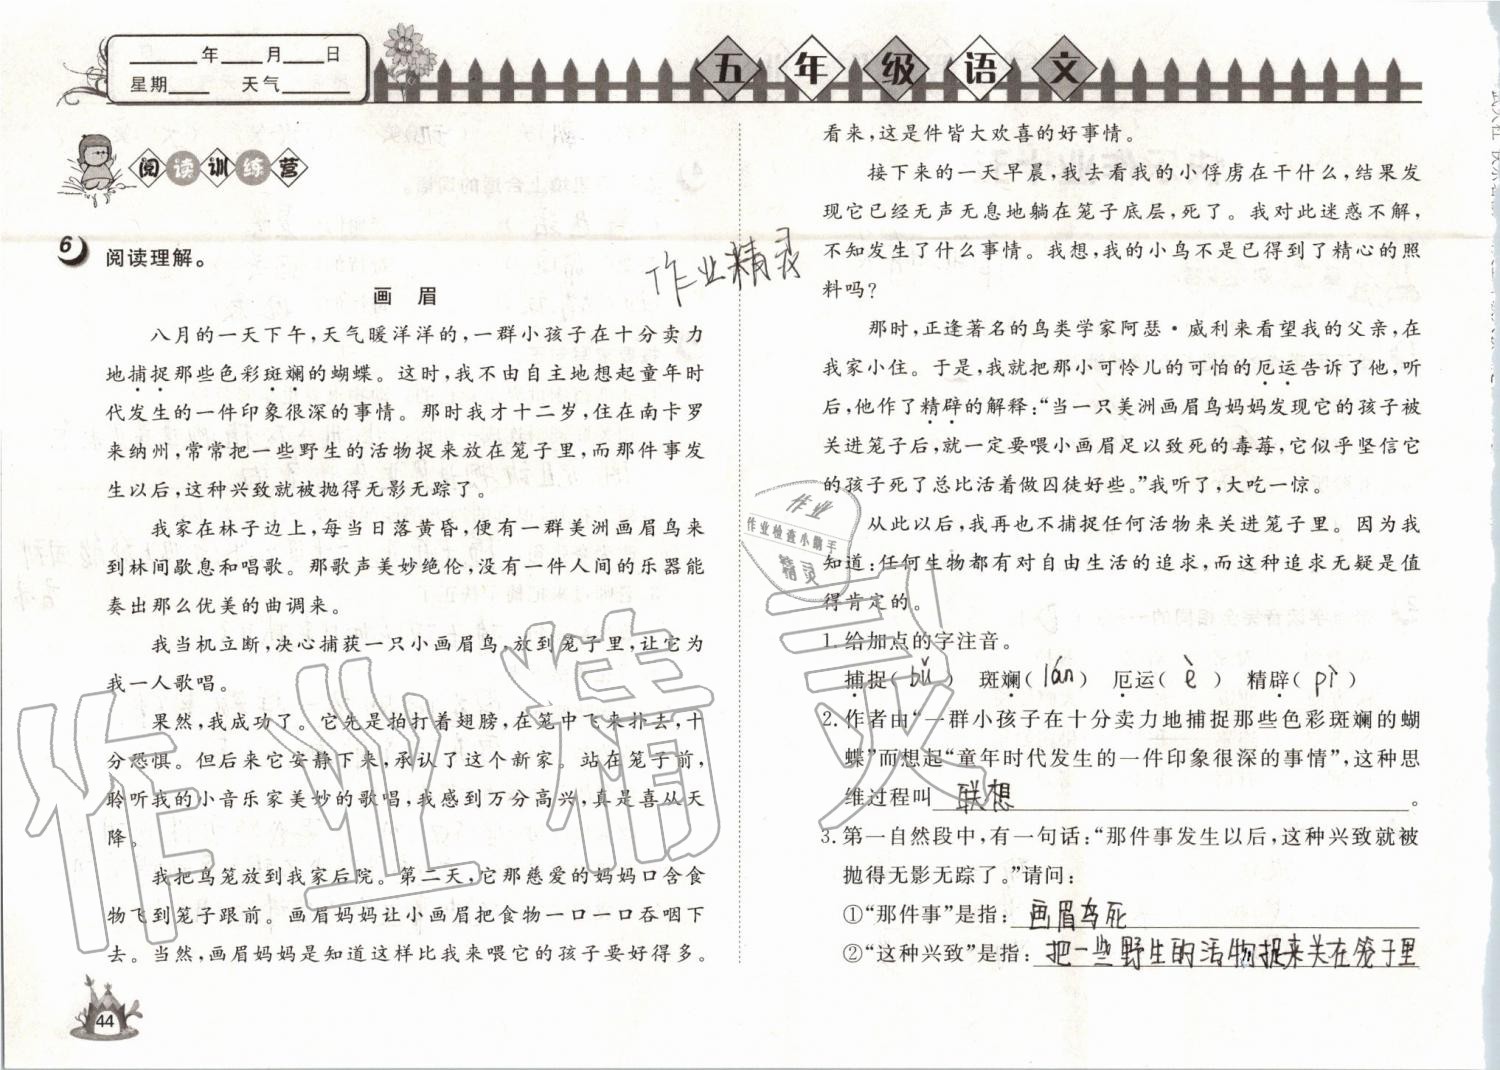 ____年____月____日
星期____ 天气______
五年级语文
阅读训练营
6 阅读理解。
画 眉
八月的一天下午,天气暖洋洋的,一群小孩子在十分卖力
地捕捉那些色彩斑斓的蝴蝶。这时,我不由自主地想起童年时
代发生的一件印象很深的事情。那时我才十二岁,住在南卡罗
来纳州,常常把一些野生的活物捉来放在笼子里,而那件事发
生以后,这种兴致就被抛得无影无踪了。
我家在林子边上,每当日落黄昏,便有一群美洲画眉鸟来
到林间歇息和唱歌。那歌声美妙绝伦,没有一件人间的乐器能
奏出那么优美的曲调来。
我当机立断,决心捕获一只小画眉鸟,放到笼子里,让它为
我一人歌唱。
果然,我成功了。它先是拍打着翅膀,在笼中飞来扑去,十
分恐惧。但后来它安静下来,承认了这个新家。站在笼子前,
聆听我的小音乐家美妙的歌唱,我感到万分高兴,真是喜从天
降。
我把鸟笼放到我家后院。第二天,它那慈爱的妈妈口含食
物飞到笼子跟前。画眉妈妈让小画眉把食物一口一口吞咽下
去。当然,画眉妈妈是知道这样比我来喂它的孩子要好得多。
44
作业精灵
看来,这是件皆大欢喜的好事情。
接下来的一天早晨,我去看我的小俘虏在干什么,结果发
现它已经无声无息地躺在笼子底层,死了。我对此迷惑不解,
不知发生了什么事情。我想,我的小鸟不是已得到了精心的照
料吗?
那时,正逢著名的鸟类学家阿瑟·威利来看望我的父亲,在
我家小住。于是,我就把那小可怜儿的可怕的厄运告诉了他,听
后,他作了精辟的解释:“当一只美洲画眉鸟妈妈发现它的孩子被
关进笼子后,就一定要喂小画眉足以致死的毒莓,它似乎坚信它
的孩子死了总比活着做囚徒好些。”我听了,大吃一惊。
从此以后,我再也不捕捉任何活物来关进笼子里。因为我
知道:任何生物都有对自由生活的追求,而这种追求无疑是值
得肯定的。
1. 给加点的字注音。
捕捉( bǔ ) 斑斓( lán ) 厄运( è ) 精辟( pì )
2. 作者由“一群小孩子在十分卖力地捕捉那些色彩斑斓的蝴
蝶”而想起“童年时代发生的一件印象很深的事情”,这种思
维过程叫 联想 。
3. 第一自然段中,有一句话:“那件事发生以后,这种兴致就被
抛得无影无踪了。”请问:
①“那件事”是指: 画眉鸟死
②“这种兴致”是指: 把一些野生的活物捉来关在笼子里
作业
作业检查小帮手
精灵
作业精灵